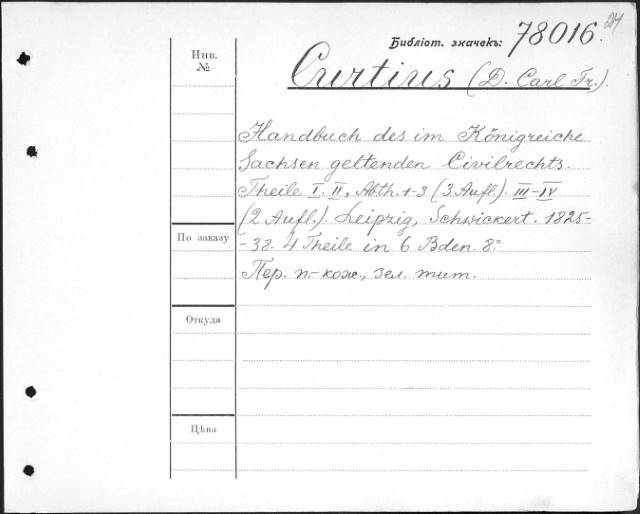 Библіот. значекъ: 78016.
Инв. №
Curtius (D. Carl Fr.).
Handbuch des im Königreiche
Sachsen geltenden Civilrechts.
Theile I. II, Abth. 1-3 (3 Aufl.). III-IV
(2 Aufl.). Leipzig, Schwickert. 1825-
По заказу
-38. 4 Theile in 6 Bden. 8°.
Пер. п.-кож., зел. тит.
Откуда
Цѣна